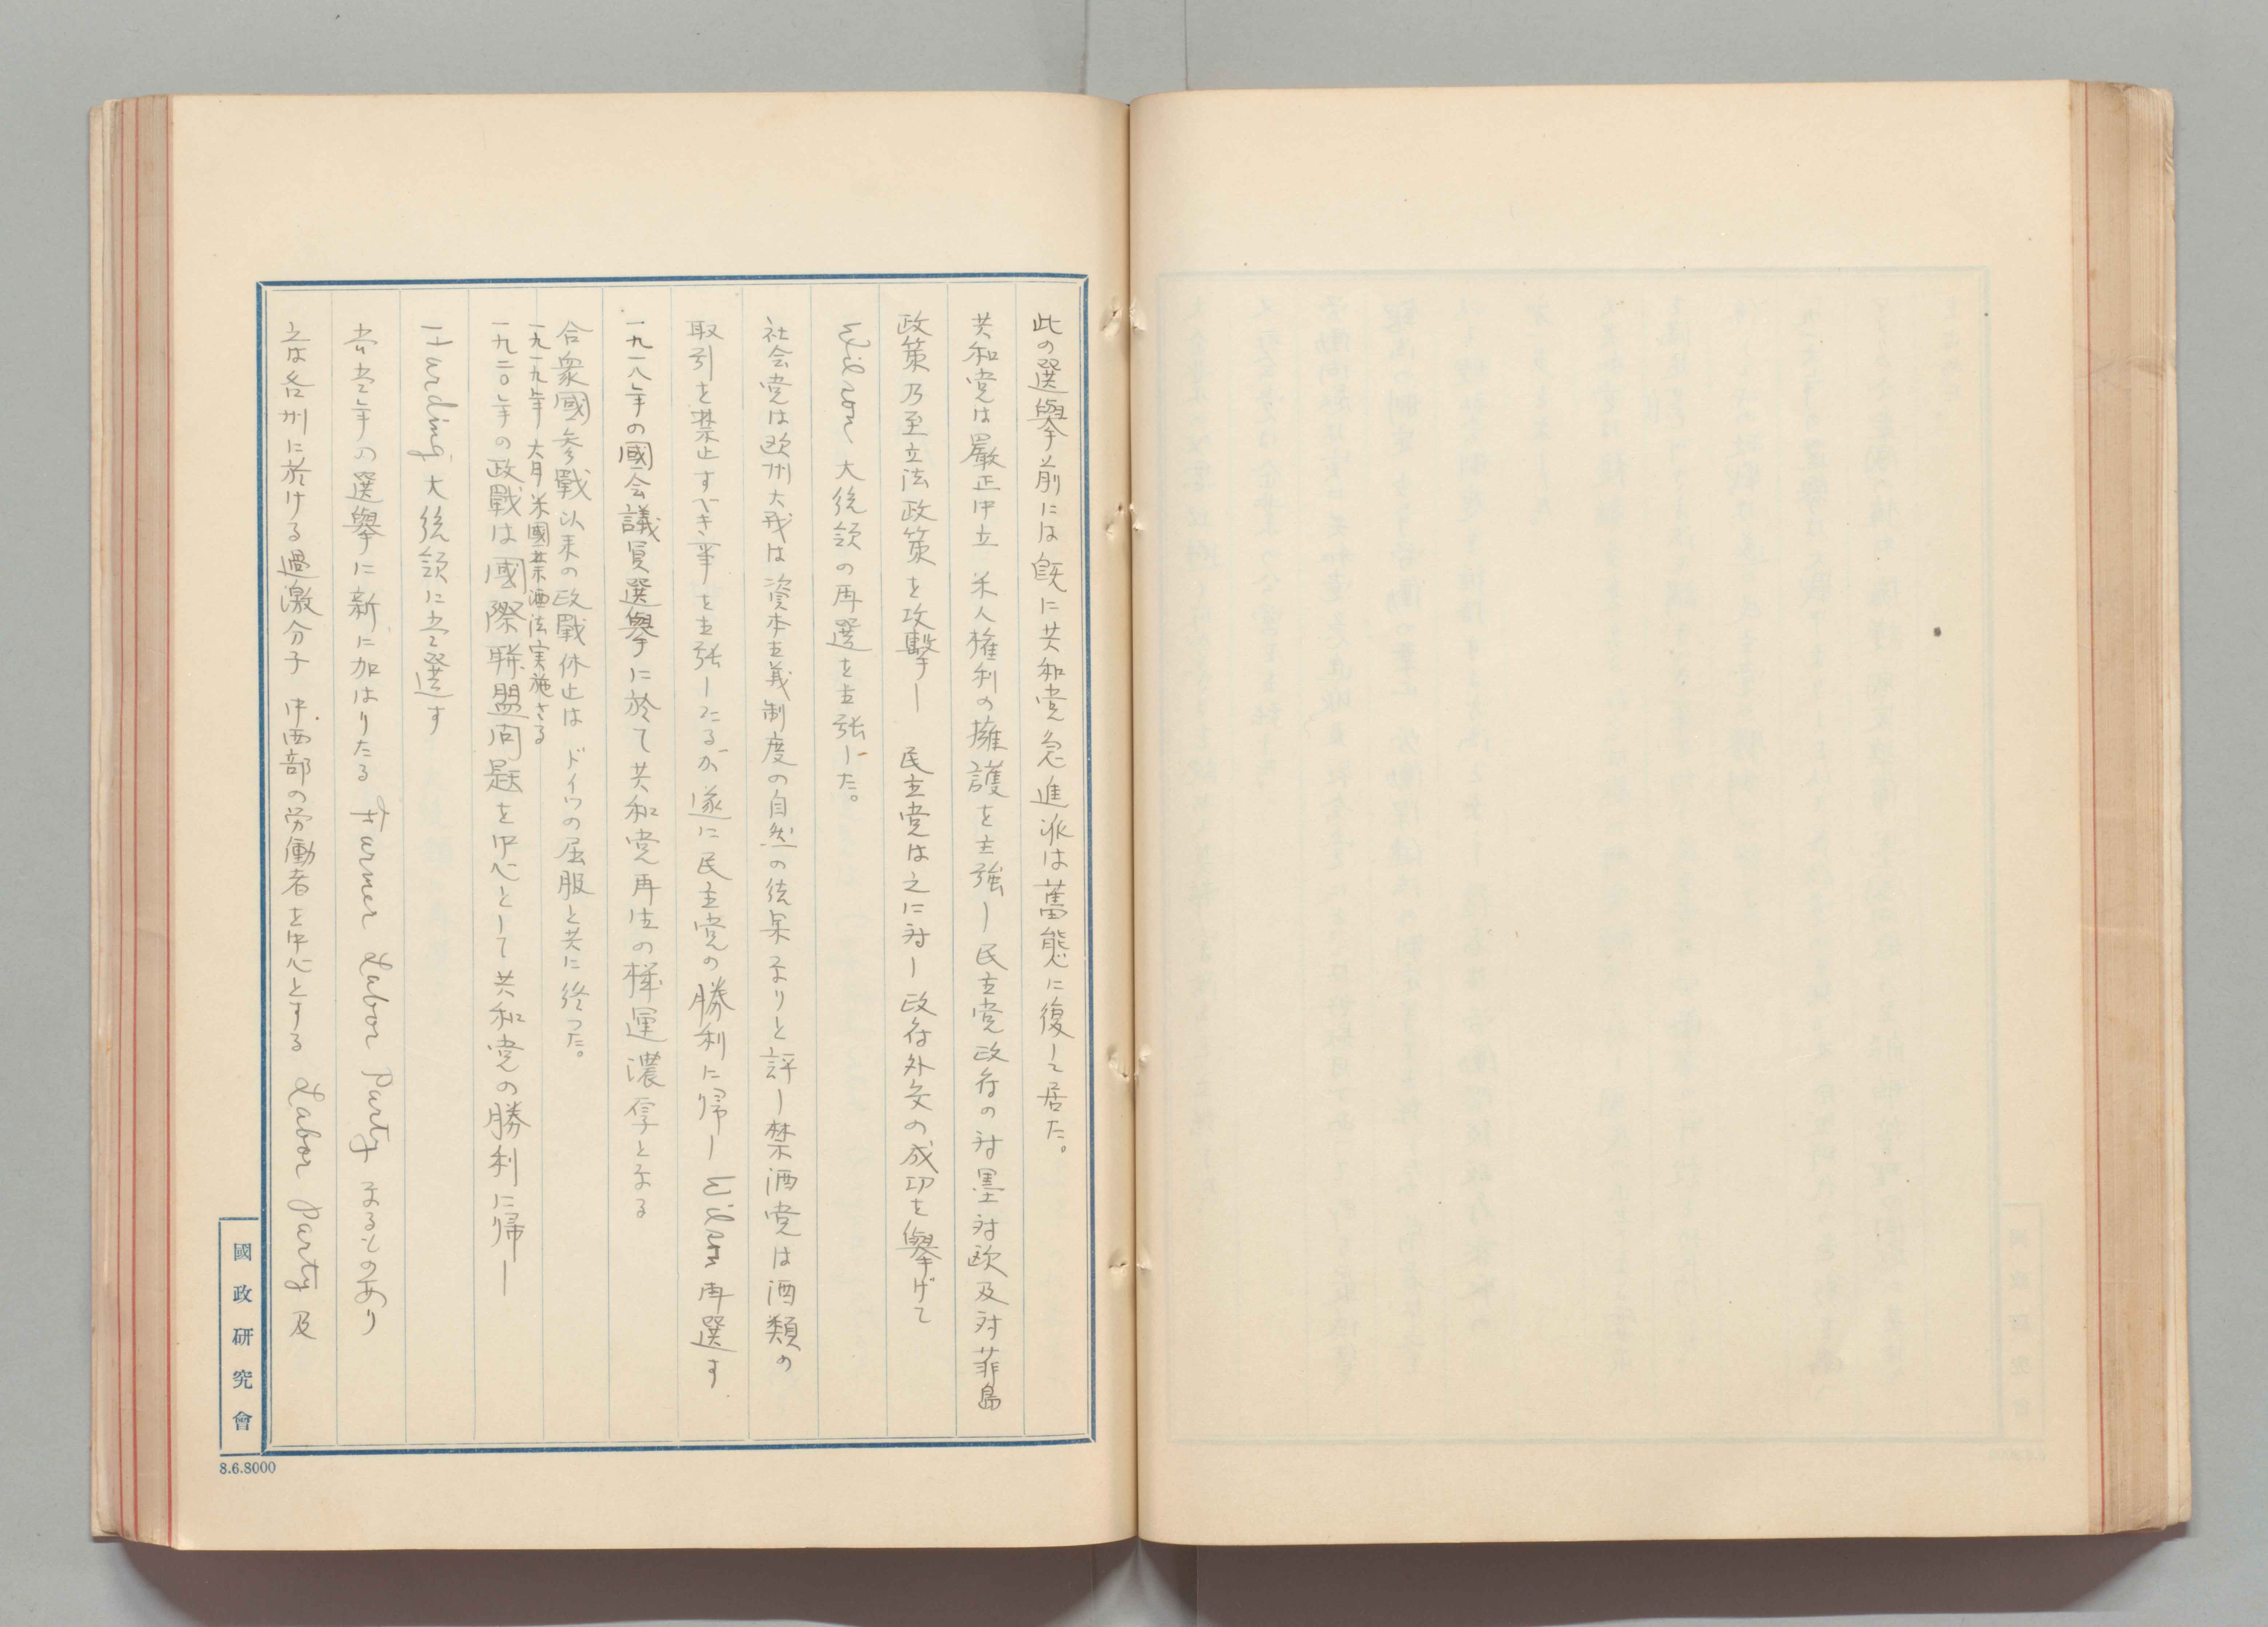 此の選擧前には既に共和党急進派は舊態に復して居た。
共和党は嚴正中立 米人権利の擁護を主強し民主党政府の対墨対欧及対菲島
政策乃至立法政策を攻擊し 民主党は之に対し政府外交の成功を擧げて
Wilson 大統領の再選を主張した。
社会党は欧州大戦は資本主義制度の自然の結果なりと評し禁酒党は酒類の
取引を禁止すべき事を主張したるが遂に民主党の勝利に帰しWilson再選す
一九一八年の國会議員選擧に於て共和党再生の機運濃厚となる
合衆國参戰以来の政戰休止はドイツの屈服と共に終った。
一九一九年六月米國禁酒法実施さる
一九二〇年の政戰は國際聯盟問題を中心として共和党の勝利に帰し
Harding 大統領に当選す
当年の選擧に新に加はりたる Farmer Labor Party なるものあり
之は各州に於ける過激分子 中西部の労働者を中心とする Labor Party 及
國政研究會
8.6.8000